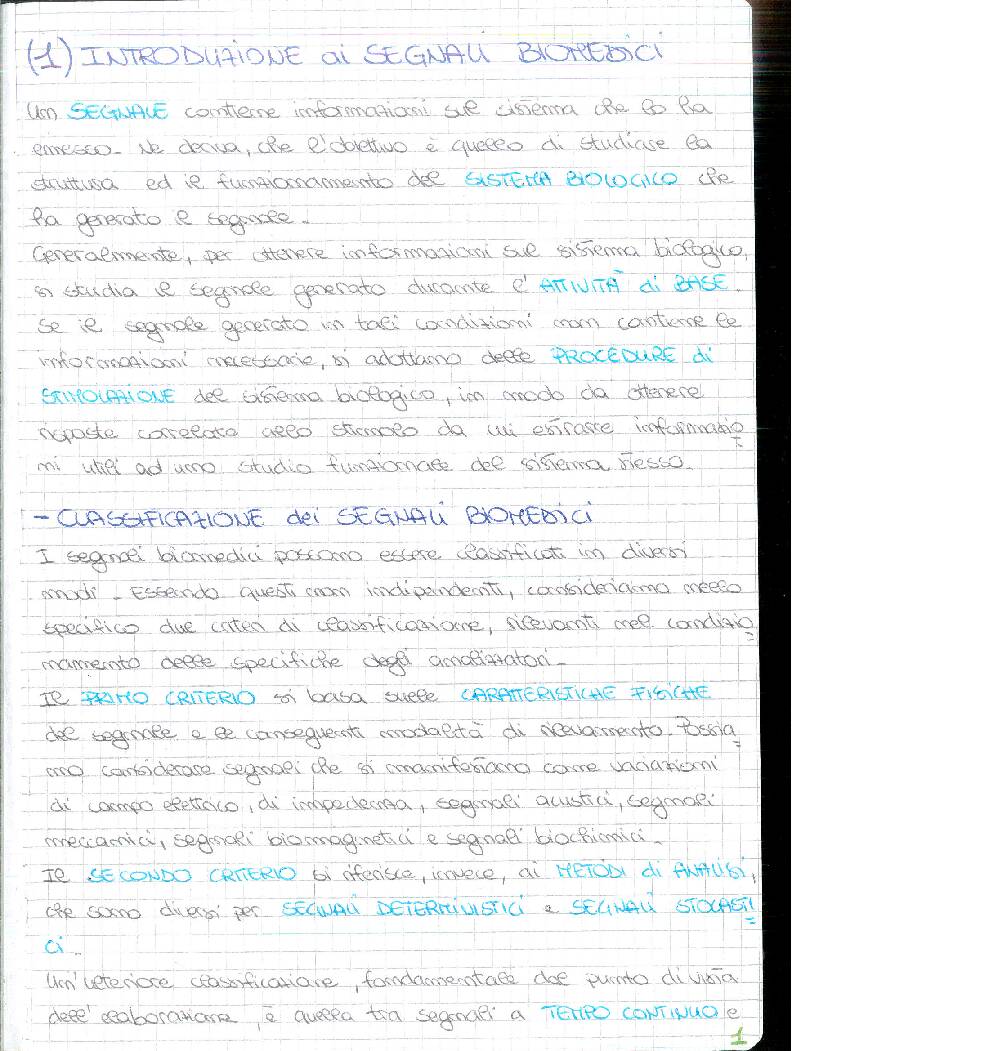 (1) INTRODUZIONE ai SEGNALI BIOMEDICI
Un SEGNALE contiene informazioni sul sistema che lo ha
emesso. Ne deriva, che l'obiettivo è quello di studiare la
struttura ed il funzionamento del SISTEMA BIOLOGICO che
ha generato il segnale.
Generalmente, per ottenere informazioni sul sistema biologico,
si studia il segnale generato durante l'ATTIVITÀ di BASE.
Se il segnale generato in tali condizioni non contiene le
informazioni necessarie, si adottano delle PROCEDURE di
STIMOLAZIONE del sistema biologico, in modo da ottenere
risposte correlate allo stimolo da cui estrarre informazio
ni utili ad uno studio funzionale del sistema stesso.
- CLASSIFICAZIONE dei SEGNALI BIOMEDICI
I segnali biomedici possono essere classificati in diversi
modi. Essendo questi non indipendenti, consideriamo nello
specifico due criteri di classificazione, rilevanti nel condizio
namento delle specifiche degli analizzatori.
Il PRIMO CRITERIO si basa sulle CARATTERISTICHE FISICHE
del segnale e le conseguenti modalità di rilevamento. Possia
mo considerare segnali che si manifestano come variazioni
di campo elettrico, di impedenza, segnali acustici, segnali
meccanici, segnali biomagnetici e segnali biochimici.
Il SECONDO CRITERIO si riferisce, invece, ai METODI di ANALISI,
che sono diversi per SEGNALI DETERMINISTICI e SEGNALI STOCASTI
CI.
Un'ulteriore classificazione, fondamentale dal punto di vista
dell'elaborazione, è quella tra segnali a TEMPO CONTINUO e
1